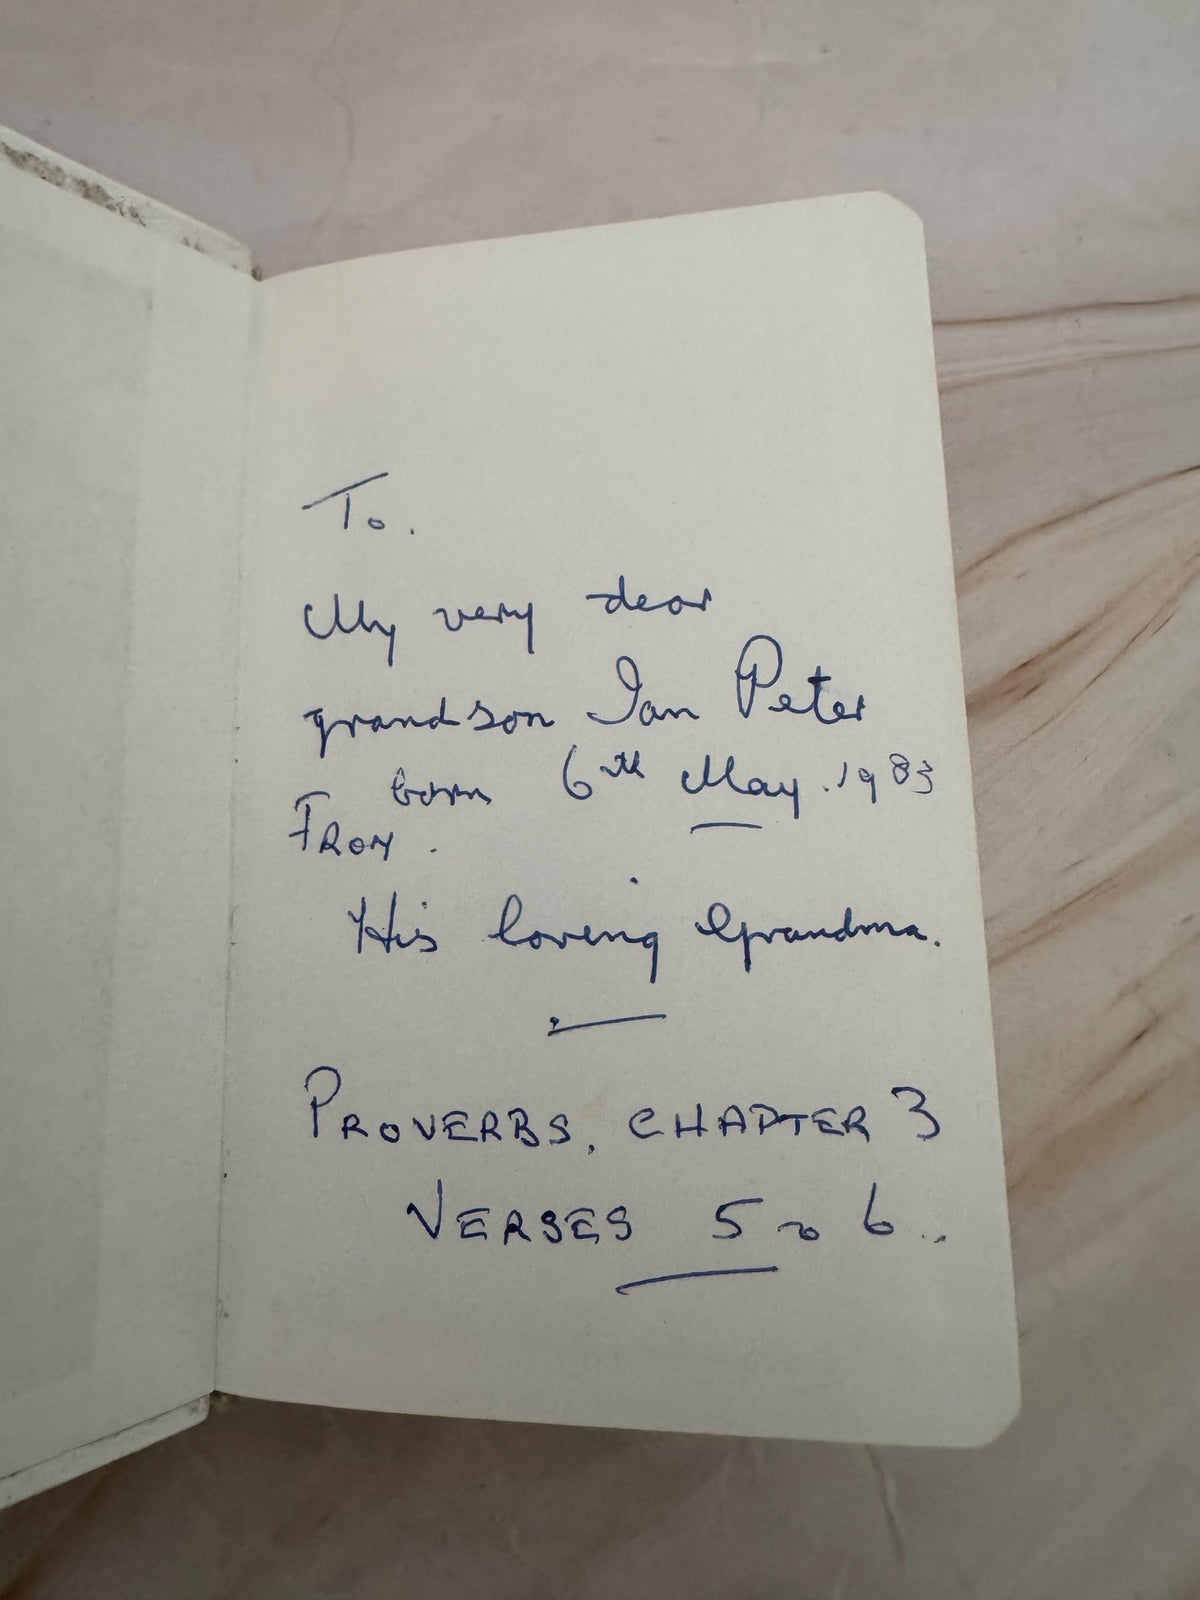 To.
My very dear
grandson Ian Peter
born 6th May. 1983
FROM.
His loving Grandma.
PROVERBS, CHAPTER 3
VERSES 5 & 6..